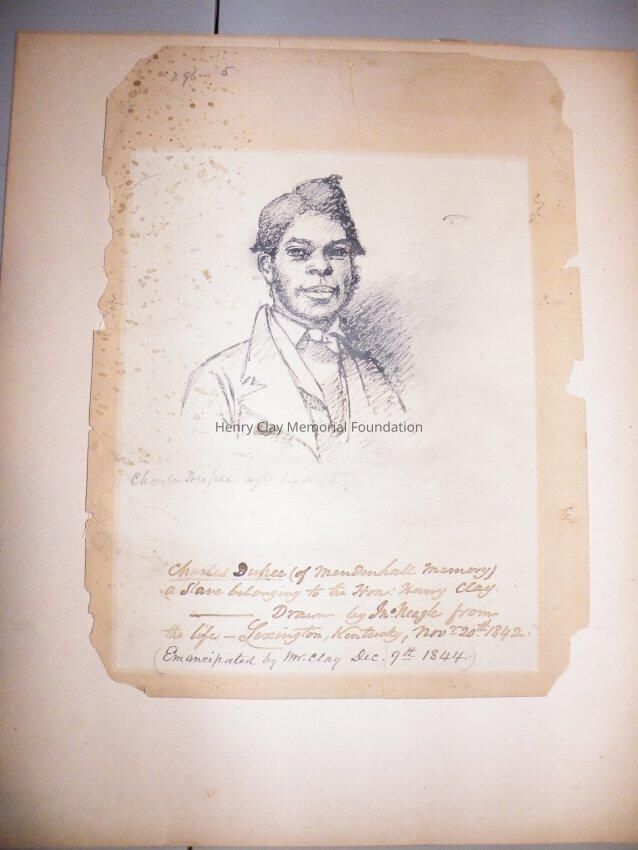 296 - 5
Henry Clay Memorial Foundation
Charles Dupee age
Charles Dupee (of Mendenhall Memory)
a Slave belonging to the Hon: Henry Clay.
Drawn by Jno Neagle from
the life - Lexington, Kentucky, Novr 20th 1842.
(Emancipated by Mr. Clay Dec. 9th 1844.)